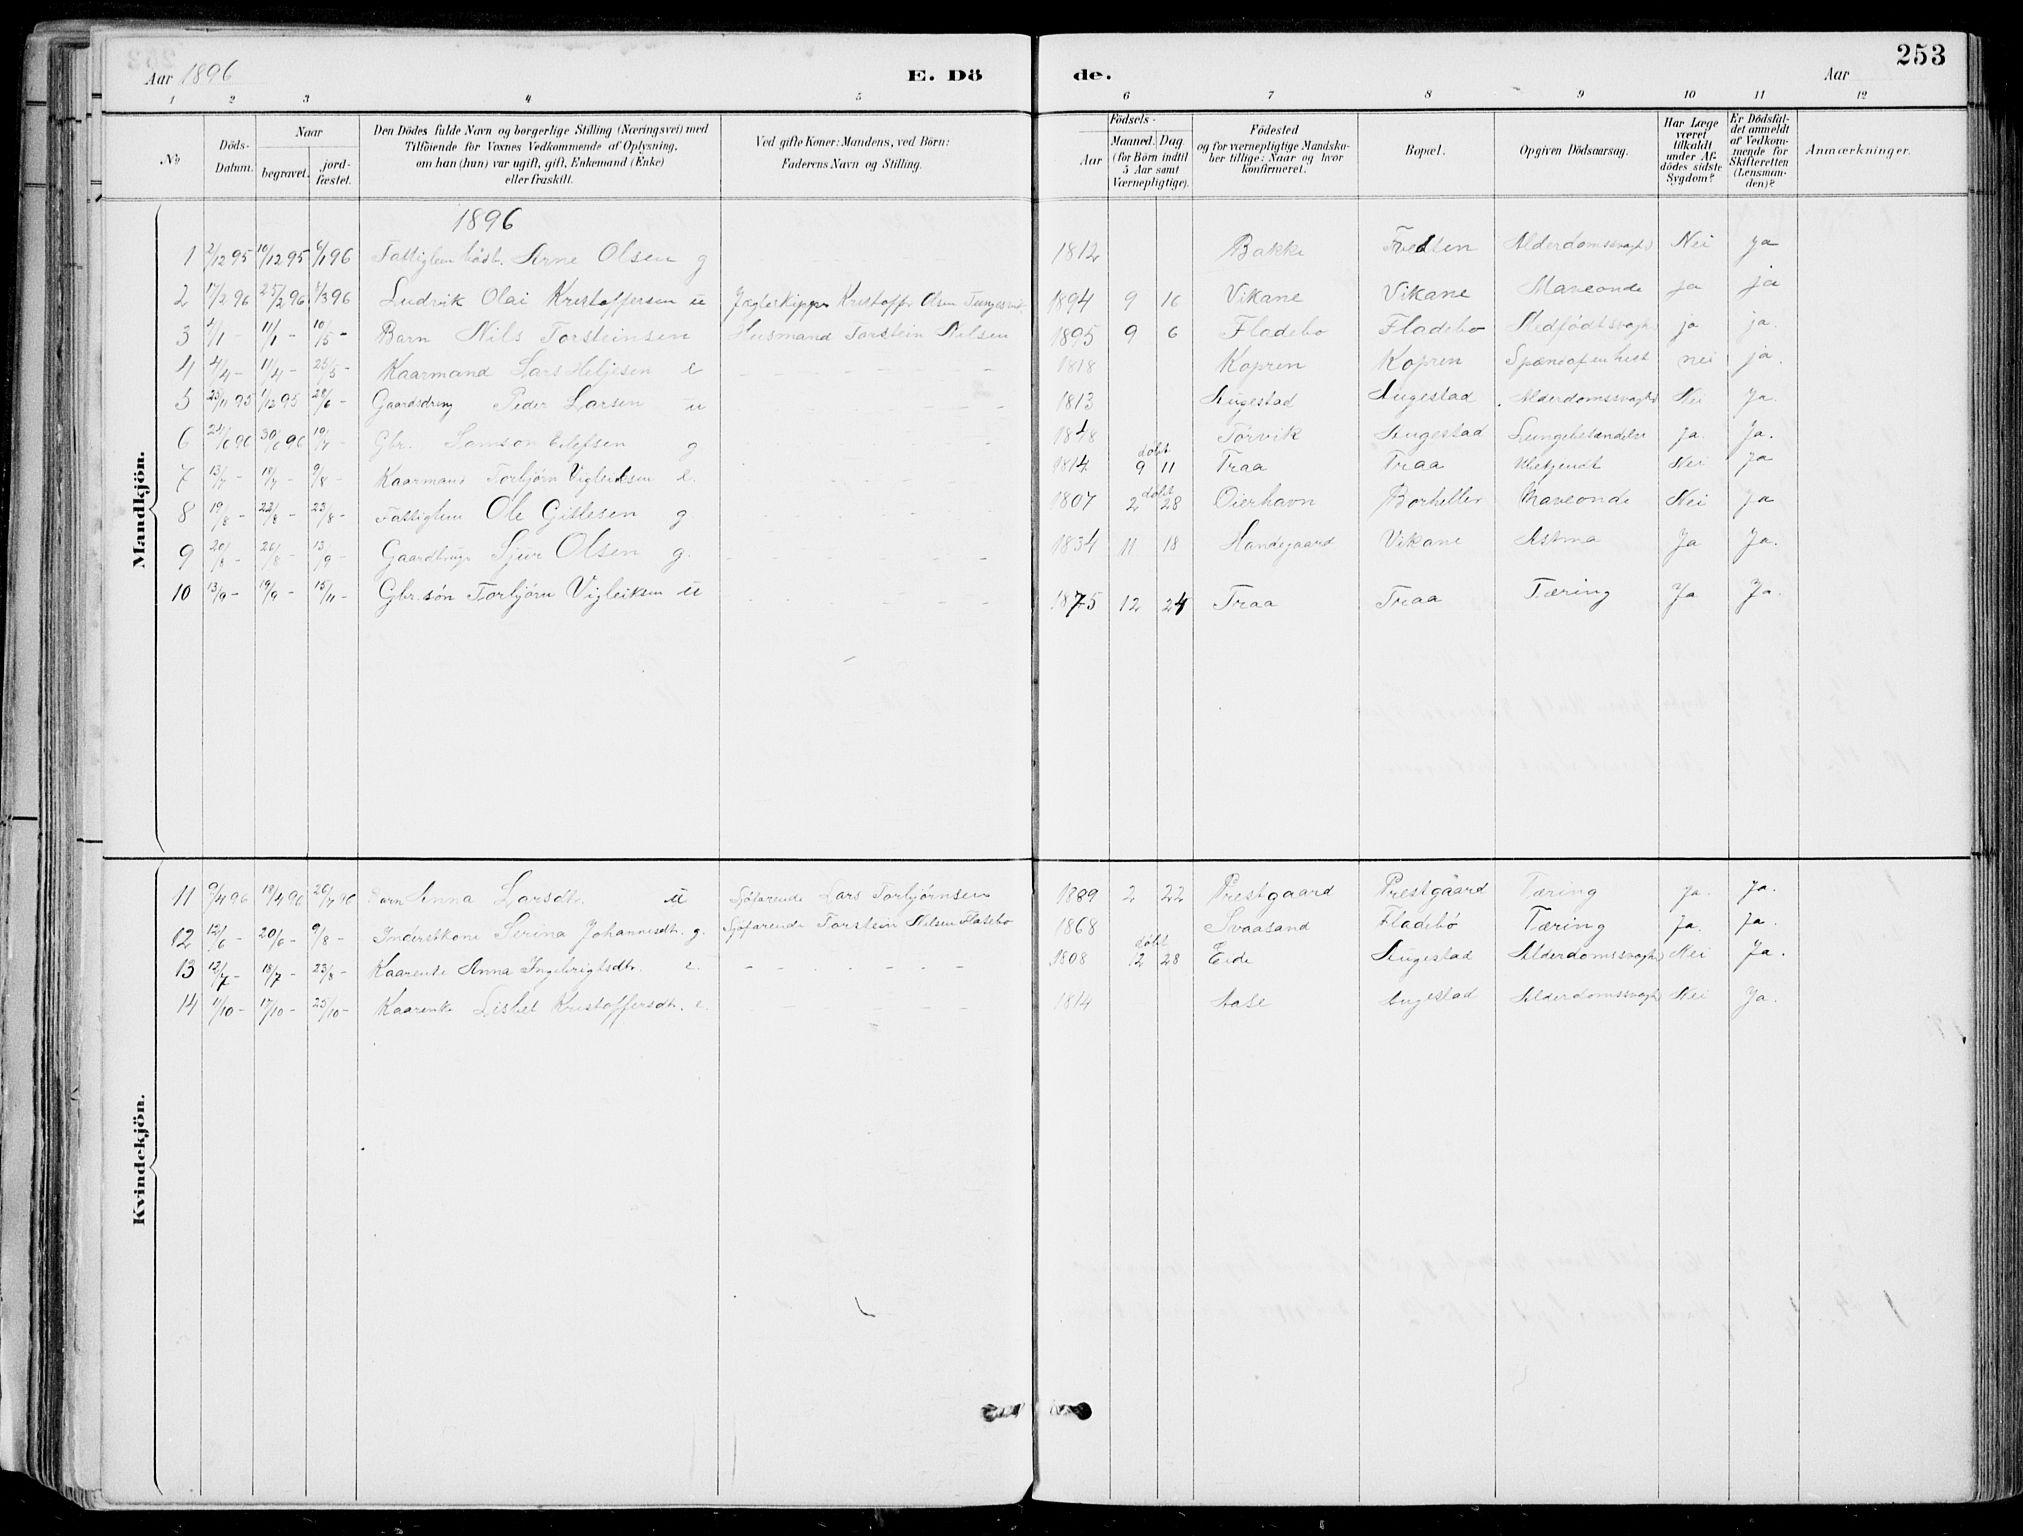 Aar 1896 E. Dö de. Aar 253
1 2 3 4 5 6 7 8 9 10 11 12
No
Döds-Datum.
Naar
begravet.
jord-fæstet.
Den Dödes fulde Navn og borgerlige Stilling (Næringsvei) med
Tilföiende for Voxnes Vedkommende af Oplysning,
om han (hun) var ugift, gift, Enkemand (Enke)
eller fraskilt.
Ved gifte Koner: Mandens, ved Börn:
Faderens Navn og Stilling.
Födsels-
Aar
Maaned. Dag
(for Börn indtil
5 Aar samt
Værnepligtige).
Födested
og for værnepligtige Mandska-
ber tillige: Naar og hvor
konfirmeret.
Bopæl.
Opgiven Dödsaarsag.
Har Læge
været
tilkaldt
under Af-
dödes sidste
Sygdom?
Er Dödsfal-
det anmeldt
af Vedkom-
mende for
Skifteretten
(Lensman-
den)?
Anmærkninger.
Mandkjön.
1896
1 2/12 95 10/12 95 6/1 96 Fattiglem Arne Olsen g 1812 Bakke Tvedten Alderdomssvaghd Nei Ja
2 17/2 96 25/2 96 8/3 96 Ludvik Olai Kristoffersen u Kristoffer Olsen 1894 9 16 Vikane Vikane Maveonde ja ja
3 1/1 - 11/1 - 10/5 - Barn Nils Torsteinsen Husmand Torstein Nilsen 1895 9 6 Fladebø Fladebø Medfødtsvaghd ja ja.
4 4/4 - 11/4 - 25/5 - Kaarmand Lars Heljesen e 1818 Kopren Kopren Spændt af en hest nei ja.
5 23/11 95 1/12 95 28/6 - Gaardsdreng Peder Larsen u 1813 Augestad Augestad Alderdomssvaghd Nei Ja.
6 24/6 96 30/6 96 10/7 - Gbr. Samson Elefsen g 1848 Tørvik Augestad Lungebetændelse Ja. Ja.
7 13/7 - 18/7 - 9/8 - Kaarmand Torbjørn Vigleiksen e. 1814 døbt 9 11 Traa Traa Ubekjendt Nei Ja
8 19/8 - 22/8 - 23/8 - Fattiglem Ole Gittlesen g 1807 døbt 2 28 Oierhavn Borheller Maveonde Nei Ja
9 20/8 - 26/8 - 13/9 - Gaardbruger Sjur Olsen g. 1834 11 18 Handegaard Vikane Astma Ja Ja.
10 13/9 - 19/9 - 15/11 - Gbr.søn Torbjørn Vigleiksen u 1875 12 24 Traa Traa Tæring Ja Ja.
Kvindekjön.
11 9/4 96 18/4 96 26/4 96 Barn Anna Larsdtr. u Sjøfarende Lars Torbjørnsen 1889 2 22 Prestgaard Prestgaard Tæring Ja. Ja.
12 12/6 - 20/6 - 9/8 - Inderstkone Serina Johannesdtr. g. Sjøfarende Torstein Nilsen Fladebø 1868 Svaasand Fladebø Tæring Ja. Ja.
13 12/7 - 18/7 - 23/8 - Kaarenke Anna Ingebrigtsdtr. e. 1808 døbt 12 28 Eide Augestad Alderdomssvaghd Nei Ja.
14 11/10 - 17/10 - 25/10 - Kaarenke Lisbet Kristoffersdtr. e. 1814 Aase Augestad Alderdomssvaghd Nei Ja.